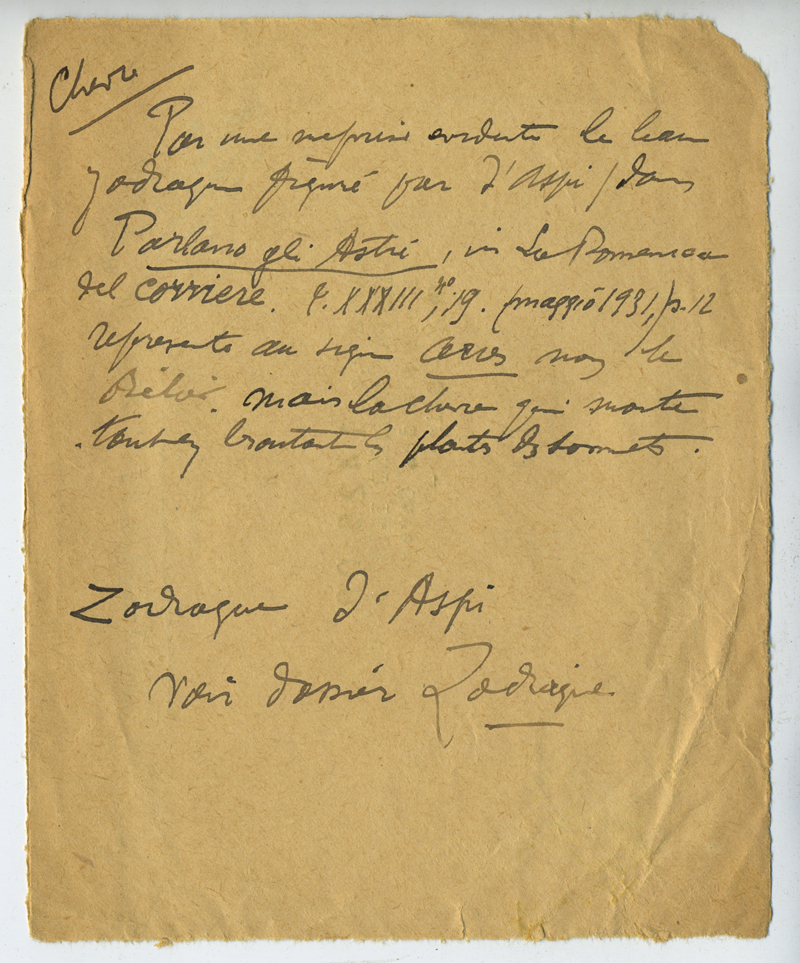 Chevre
Par une meprise evidente le beau
zodiaque figuré par d'Aspi / dans
Parlano gli Astri, in La Domenica
del Corriere. t. XXXIII, no, 19. (maggio 1931,) p. 12
represente au signe Aries non le
Bélier. mais la chevre qui monte
tout en broutant les plantes des sommets.
Zodiaque d'Aspi
Voir dossier Zodiaque